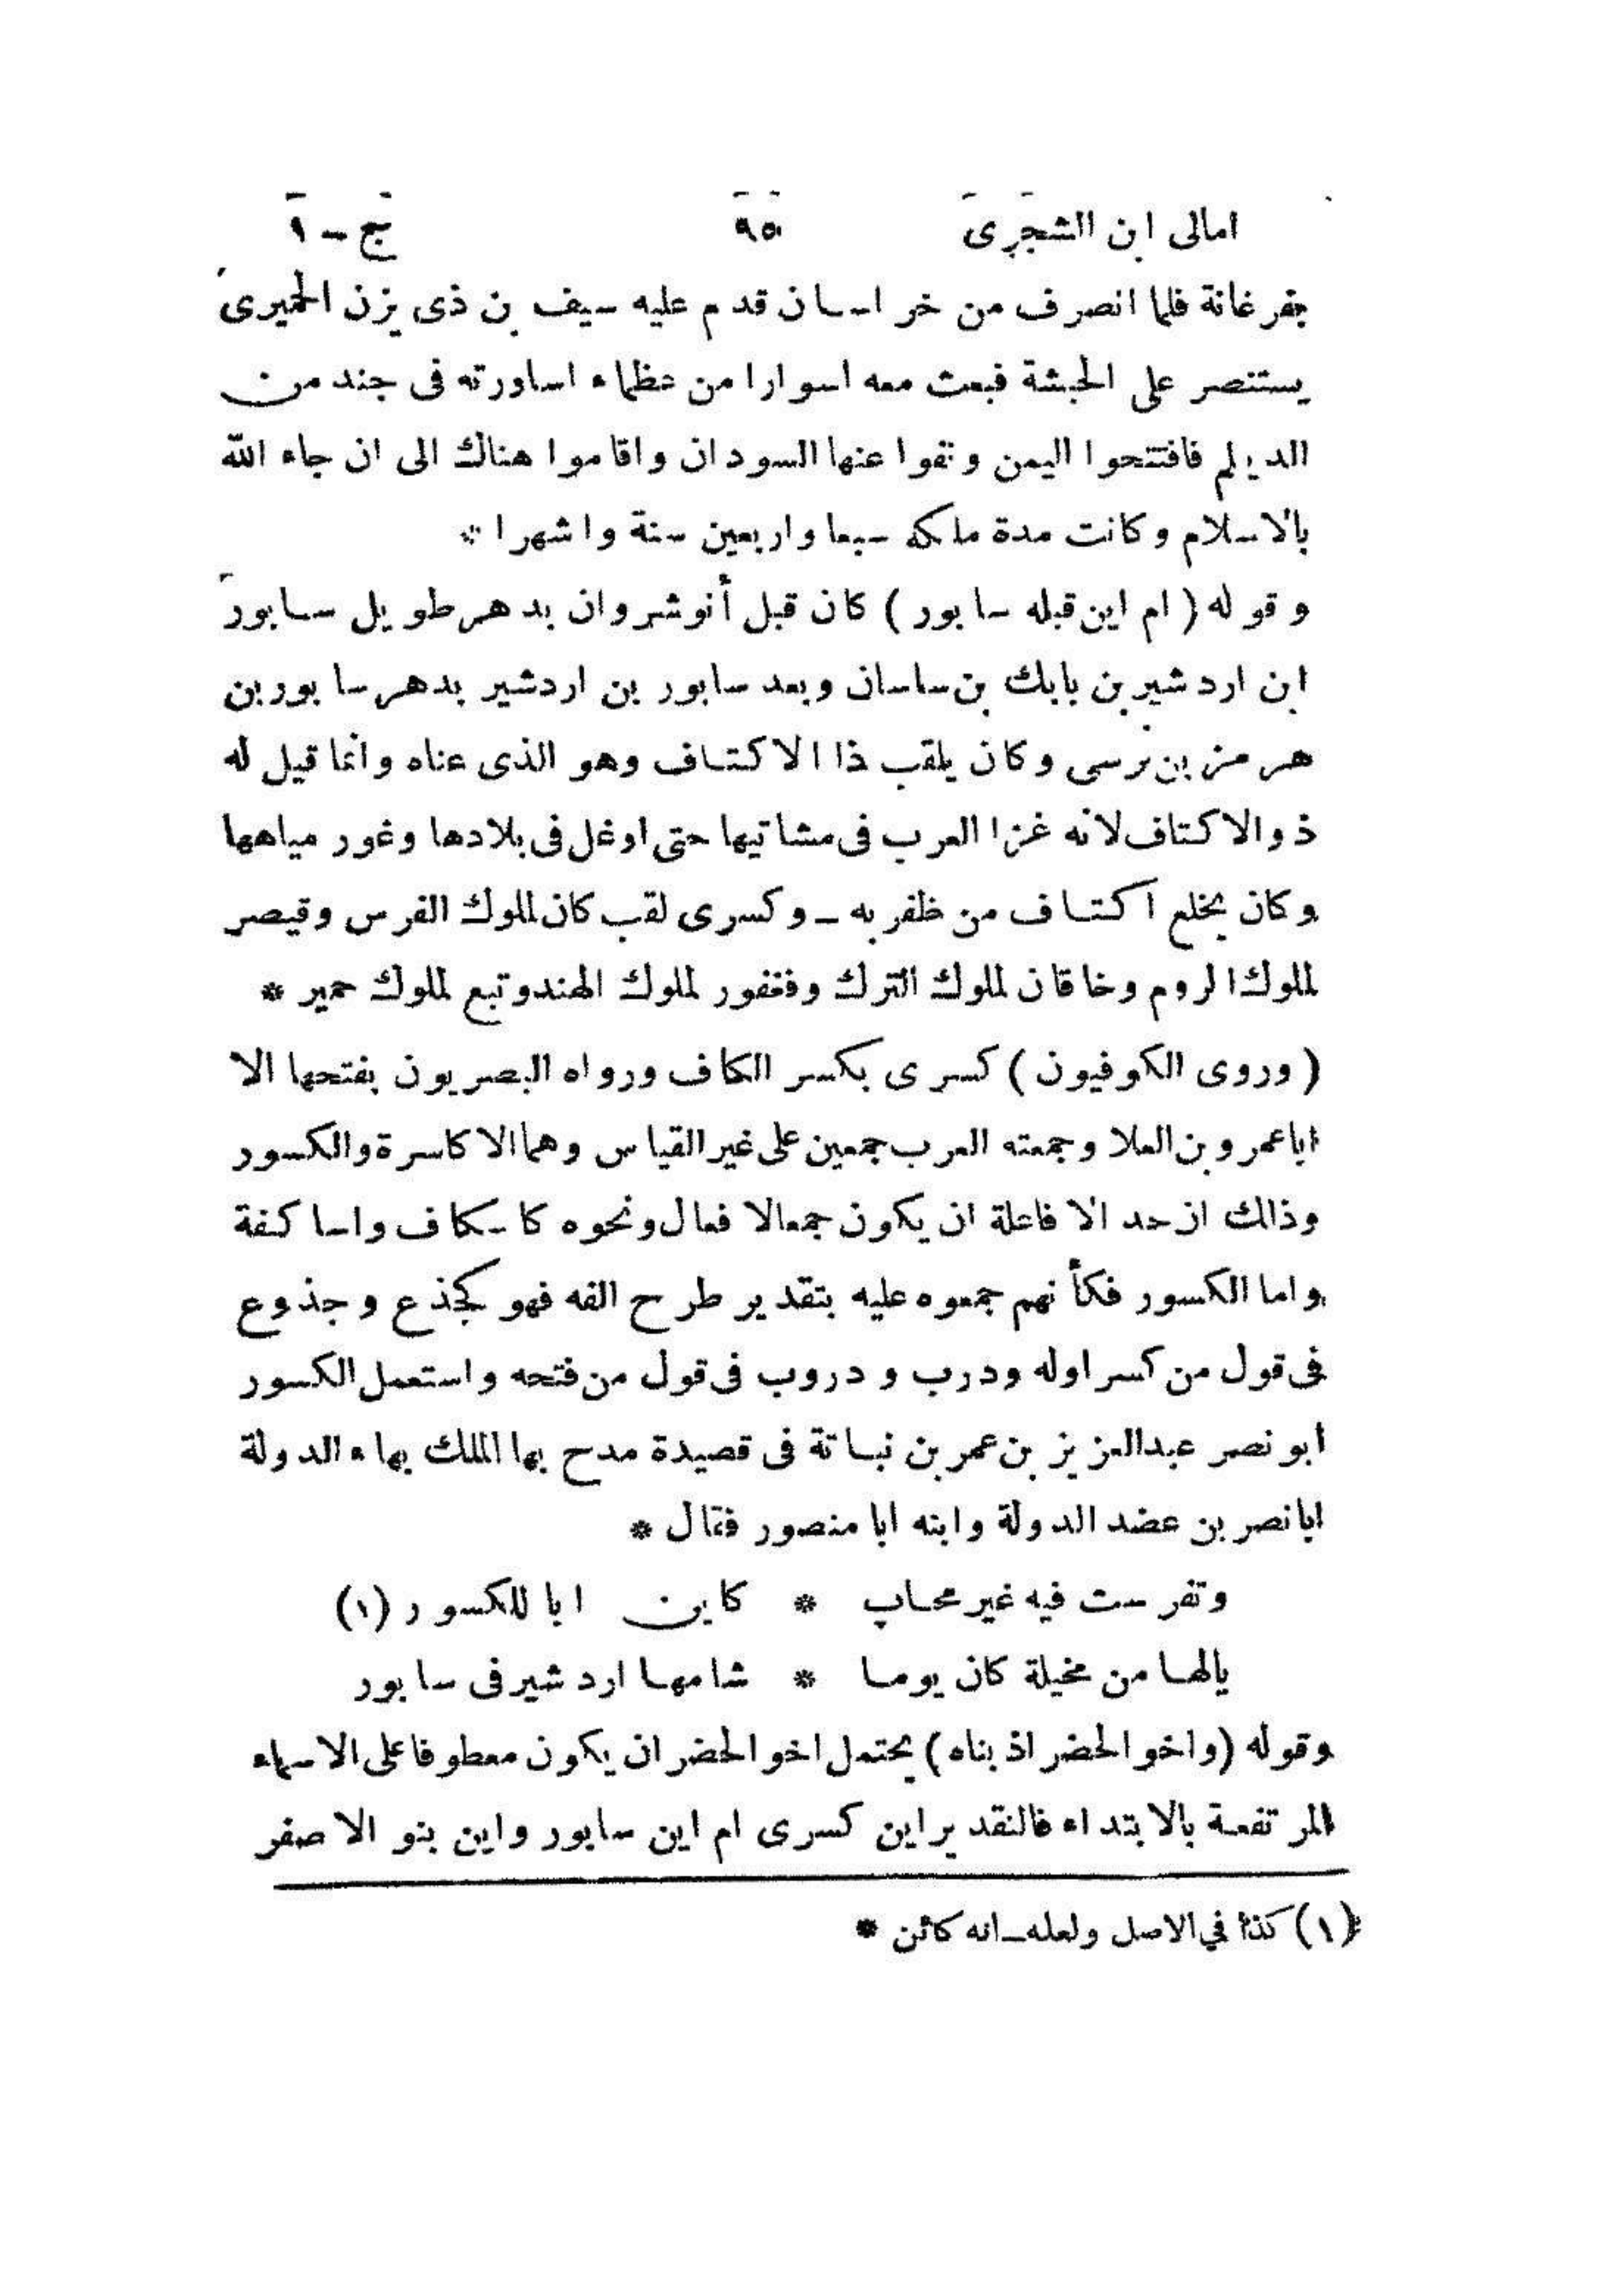 امالى ابن الشجرى ٩٥ ج – ١
بفرغانة فلما انصرف من خراسان قدم عليه سيف بن ذى يزن الحميرى
يستنصر على الحبشة فبعث معه اسوارا من عظماء اساورته فى جند من
الديلم فافتتحوا اليمن ونفوا عنها السودان واقاموا هناك الى ان جاء الله
بالاسلام وكانت مدة ملكه سبعا واربعين سنة واشهرا *
وقوله ( ام اين قبله سابور ) كان قبل أنوشروان بدهر طويل سابور
ابن اردشير بن بابك بن ساسان وبعد سابور بن اردشير بدهر سابور بن
هرمز بن نرسى وكان يلقب ذا الاكتاف وهو الذى عناه وانما قيل له
ذوالاكتاف لانه غزا العرب فى مشاتيها حتى اوغل فى بلادها وغور مياهها
وكان يخلع اكتاف من ظفر به – وكسرى لقب كان لملوك الفرس وقيصر
لملوك الروم وخاقان لملوك الترك وفغفور لملوك الهند وتبع لملوك حمير *
( وروى الكوفيون ) كسرى بكسر الكاف ورواه البصريون بفتحها الا
اباعمرو بن العلا وجمعته العرب جمعين على غير القياس وهما الاكاسرة والكسور
وذالك ان حد الافاعلة ان يكون جمعالافعال ونحوه كاسكاف واساكفة
واما الكسور فكأنهم جمعوه عليه بتقدير طرح الفه فهو كجذع وجذوع
فى قول من كسر اوله ودرب ودروب فى قول من فتحه واستعمل الكسور
ابو نصر عبدالعزيز بن عمر بن نباتة فى قصيدة مدح بها الملك بهاء الدولة
ابانصر بن عضد الدولة وابنه ابا منصور فقال *
وتفرست فيه غير محاب * كاين ابا للكسور (١)
يالها من مخيلة كان يوما * شامها اردشير فى سابور
وقوله (واخو الحضر اذ بناه) يحتمل اخو الحضر ان يكون معطوفا على الاسماء
المرتفعة بالابتداء فالتقدير اين كسرى ام اين سابور واين بنو الاصفر
(١) كذا في الاصل ولعله – انه كائن *